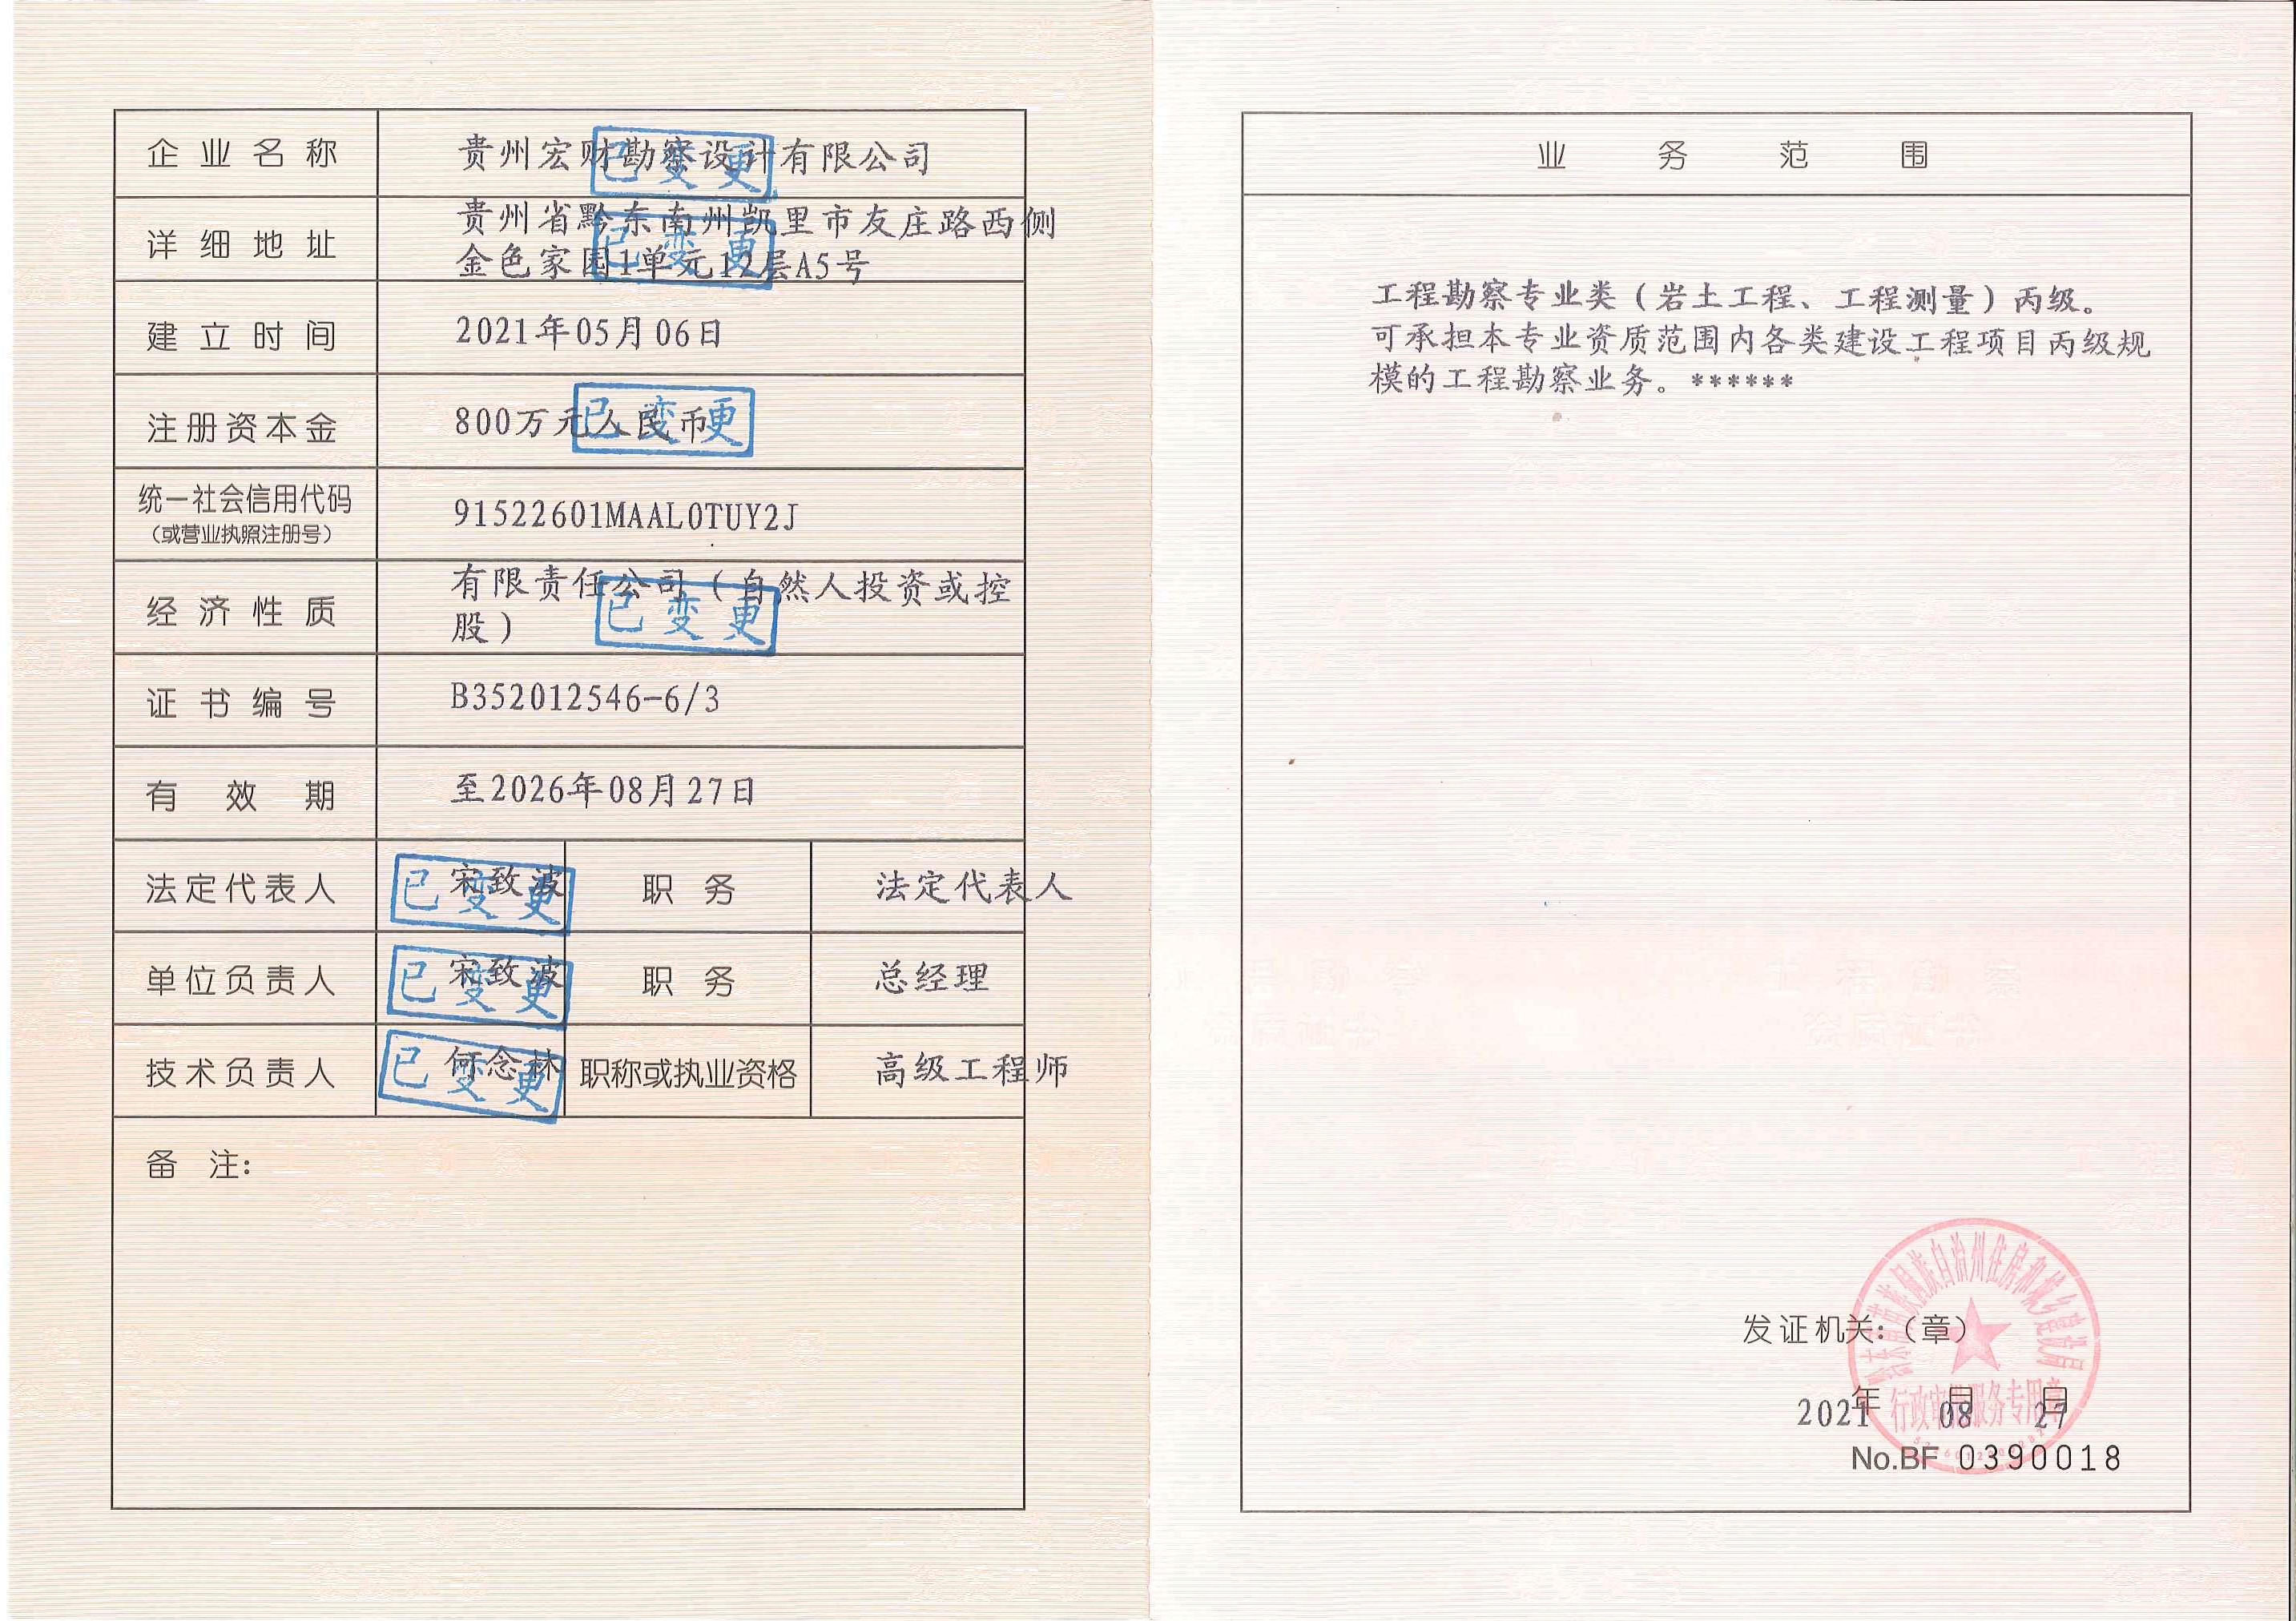 企业名称 贵州宏财勘察设计有限公司
已变更
详细地址 贵州省黔东南州凯里市友庄路西侧
金色家园1单元12层A5号
已变更
建立时间 2021年05月06日
注册资本金 800万元人民币
已变更
统一社会信用代码
（或营业执照注册号）
91522601MAAL0TUY2J
经济性质 有限责任公司（自然人投资或控
股）
已变更
证书编号 B352012546-6/3
有效期 至2026年08月27日
法定代表人 宋致波 职务 法定代表人
已变更
单位负责人 宋致波 职务 总经理
已变更
技术负责人 何念林 职称或执业资格 高级工程师
已变更
备注:
业务范围
工程勘察专业类（岩土工程、工程测量）丙级。
可承担本专业资质范围内各类建设工程项目丙级规
模的工程勘察业务。******
发证机关:（章）
2021年 08月 27日
No.BF 0390018
黔东南苗族侗族自治州住房和城乡建设局
行政审批服务专用章